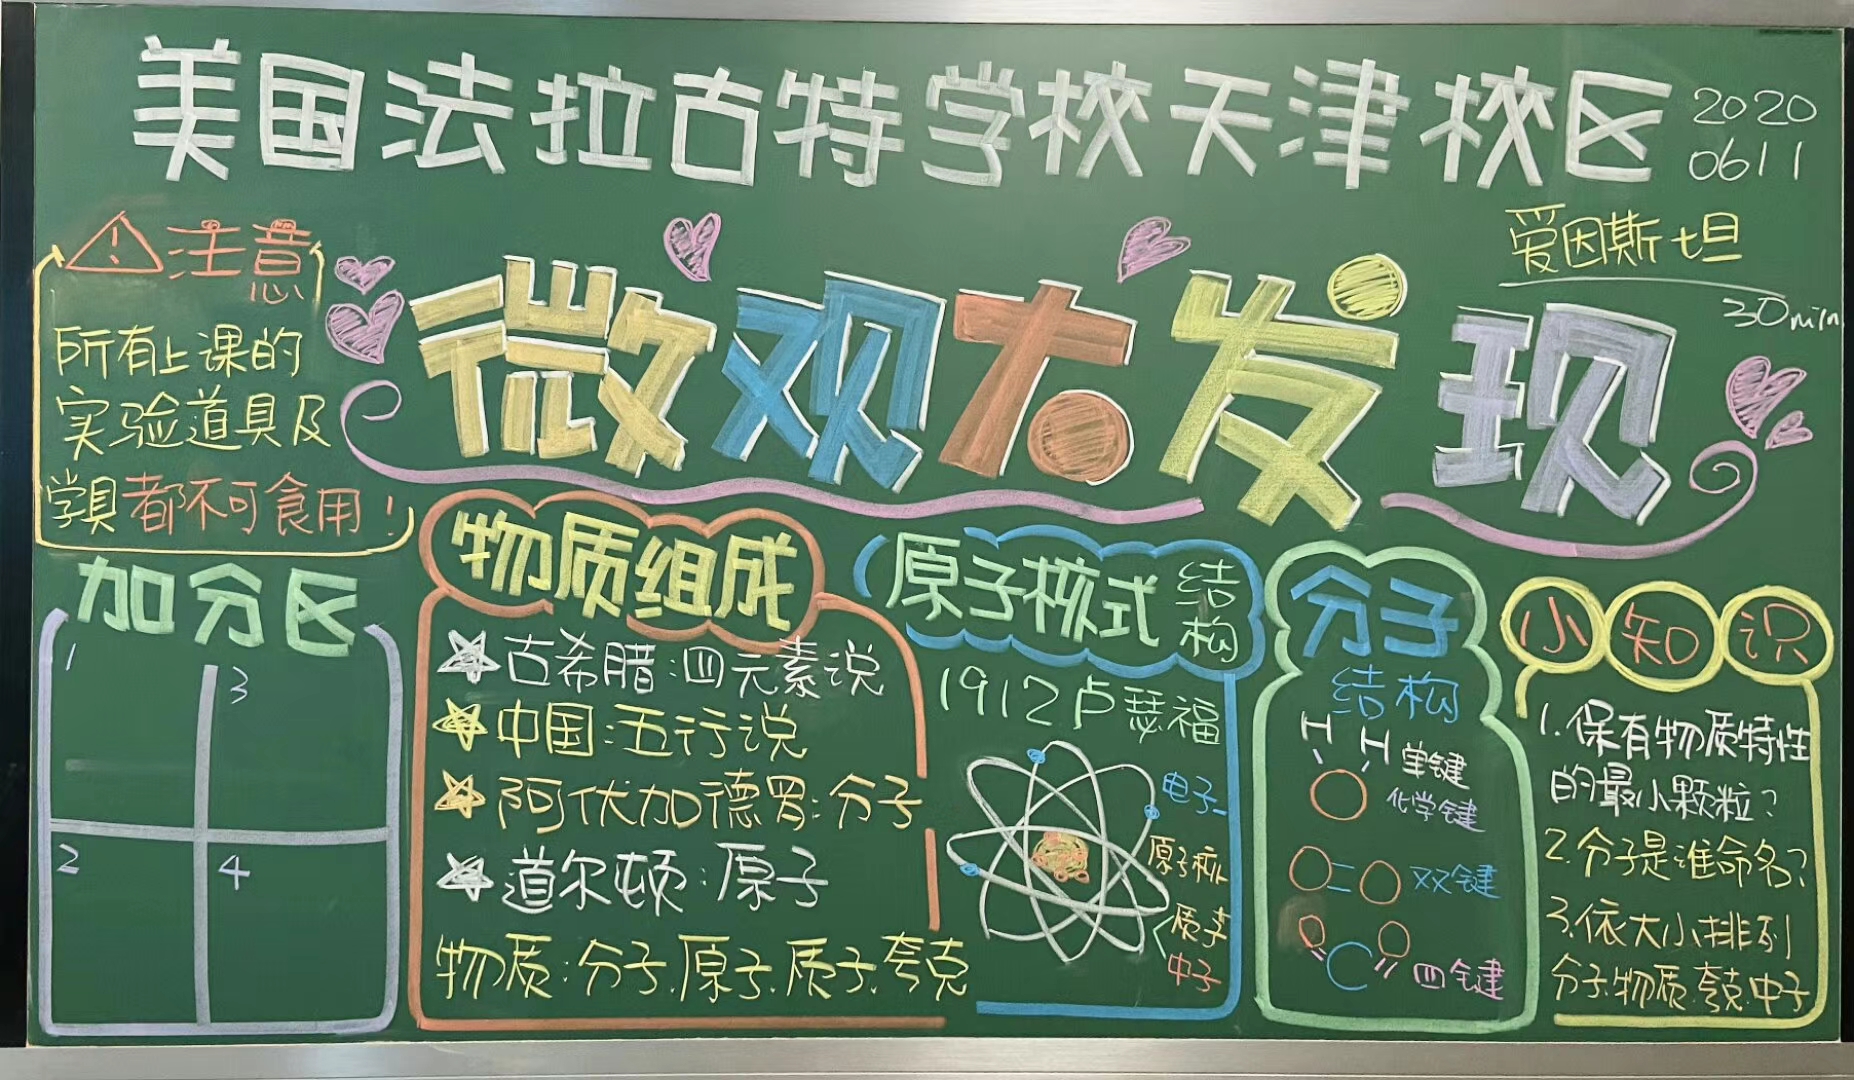 美国法拉古特学校天津校区
2020
0611
爱因斯坦
30min
微观大发现
注意
所有上课的
实验道具及
学具都不可食用!
加分区
1
3
2
4
物质组成
古希腊:四元素说
中国:五行说
阿伏加德罗:分子
道尔顿:原子
物质:分子.原子.质子.夸克
原子核式结构
1912卢瑟福
电子-
原子核
质子
中子
分子
结构
H
H 单键
化学键
O=O 双键
O
O
C
四键
小知识
1.保有物质特性
的最小颗粒?
2.分子是谁命名?
3.依大小排列
分子.物质.夸克.中子